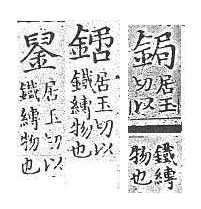 鋦
居玉
切以
鐵縛
物也
居玉切以
鐵縛物也
居玉切以
鐵縛物也